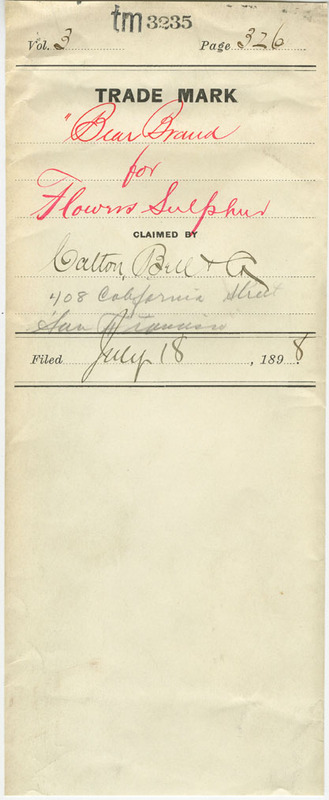 tm 3235
Vol. 3 Page 326
TRADE MARK
"Bear Brand
for
Flowers Sulphur
CLAIMED BY
Catton, Bell & Co
408 California Street
San Francisco
Filed July 18, 1898.